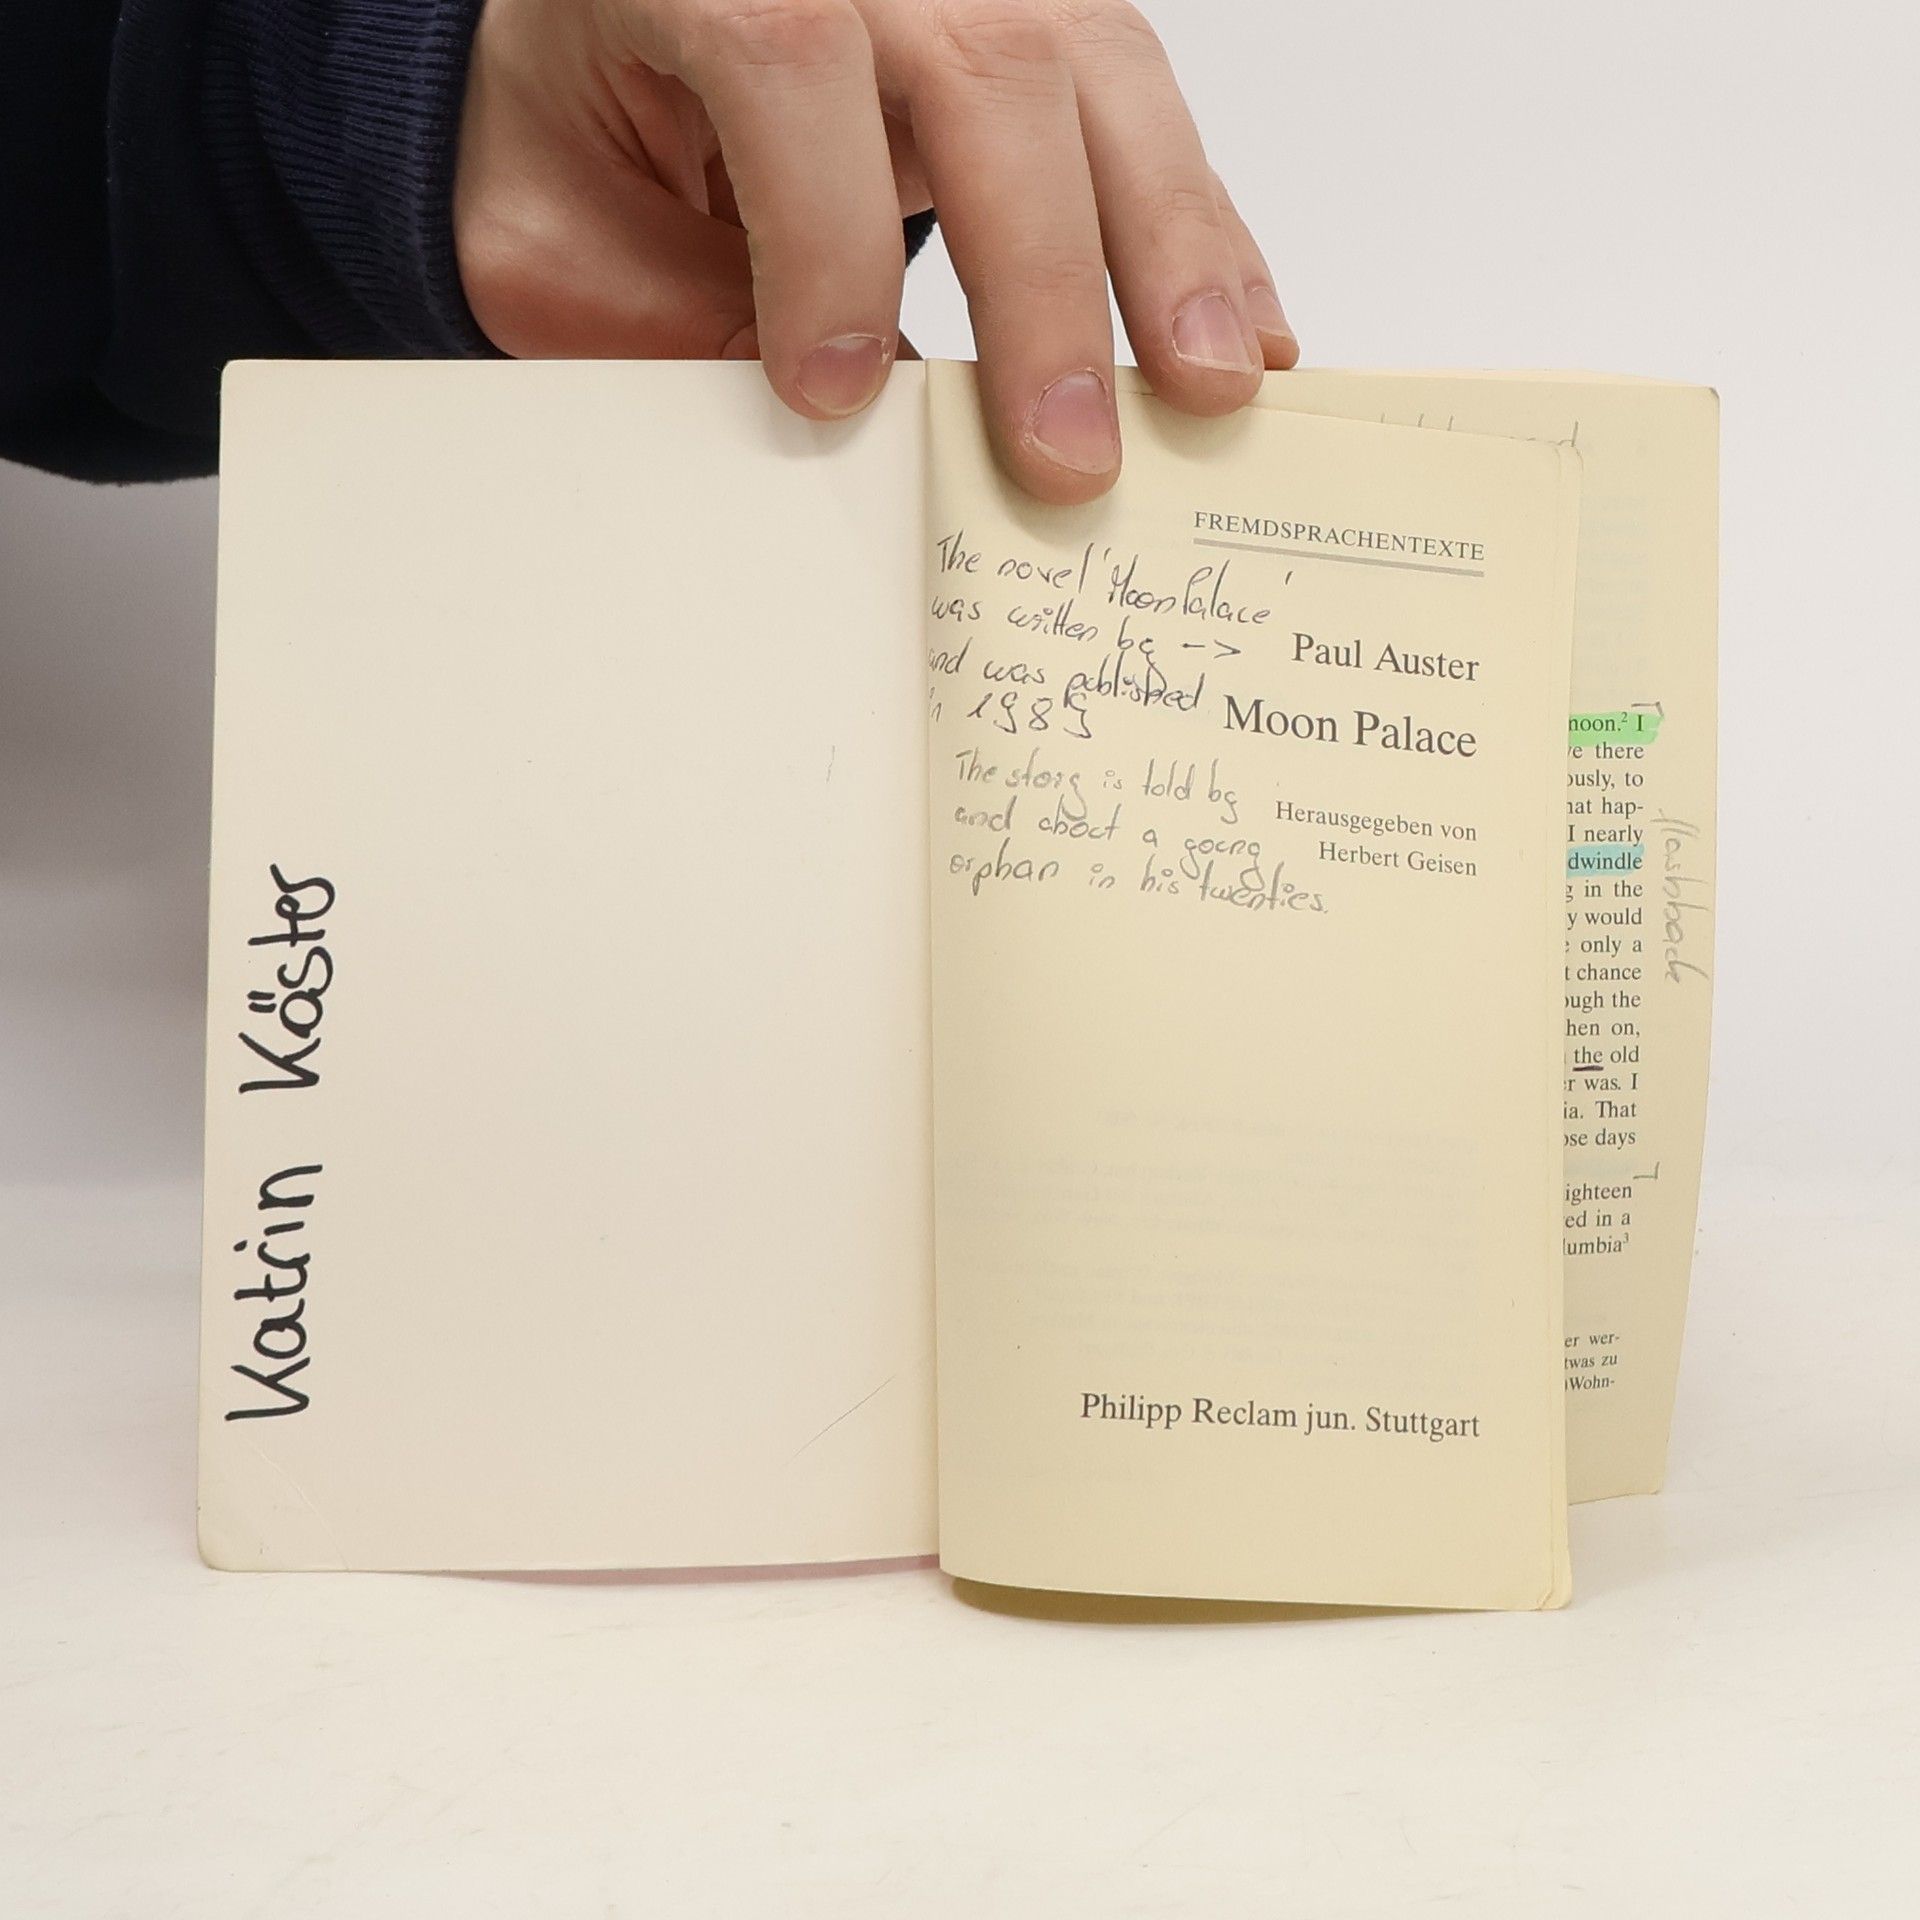 Katrin Köster
FREMDSPRACHENTEXTE
The novel 'Moon Palace'
was written by ->
and was published
in 1989
Paul Auster
Moon Palace
The story is told by
and about a young
orphan in his twenties.
Herausgegeben von
Herbert Geisen
Philipp Reclam jun. Stuttgart
moon.² I
there
to
hap-
I nearly
dwindle
in the
would
only a
chance
the
on,
the old
was. I
That
days
flashback
in a
3
wer-
zu
Wohn-